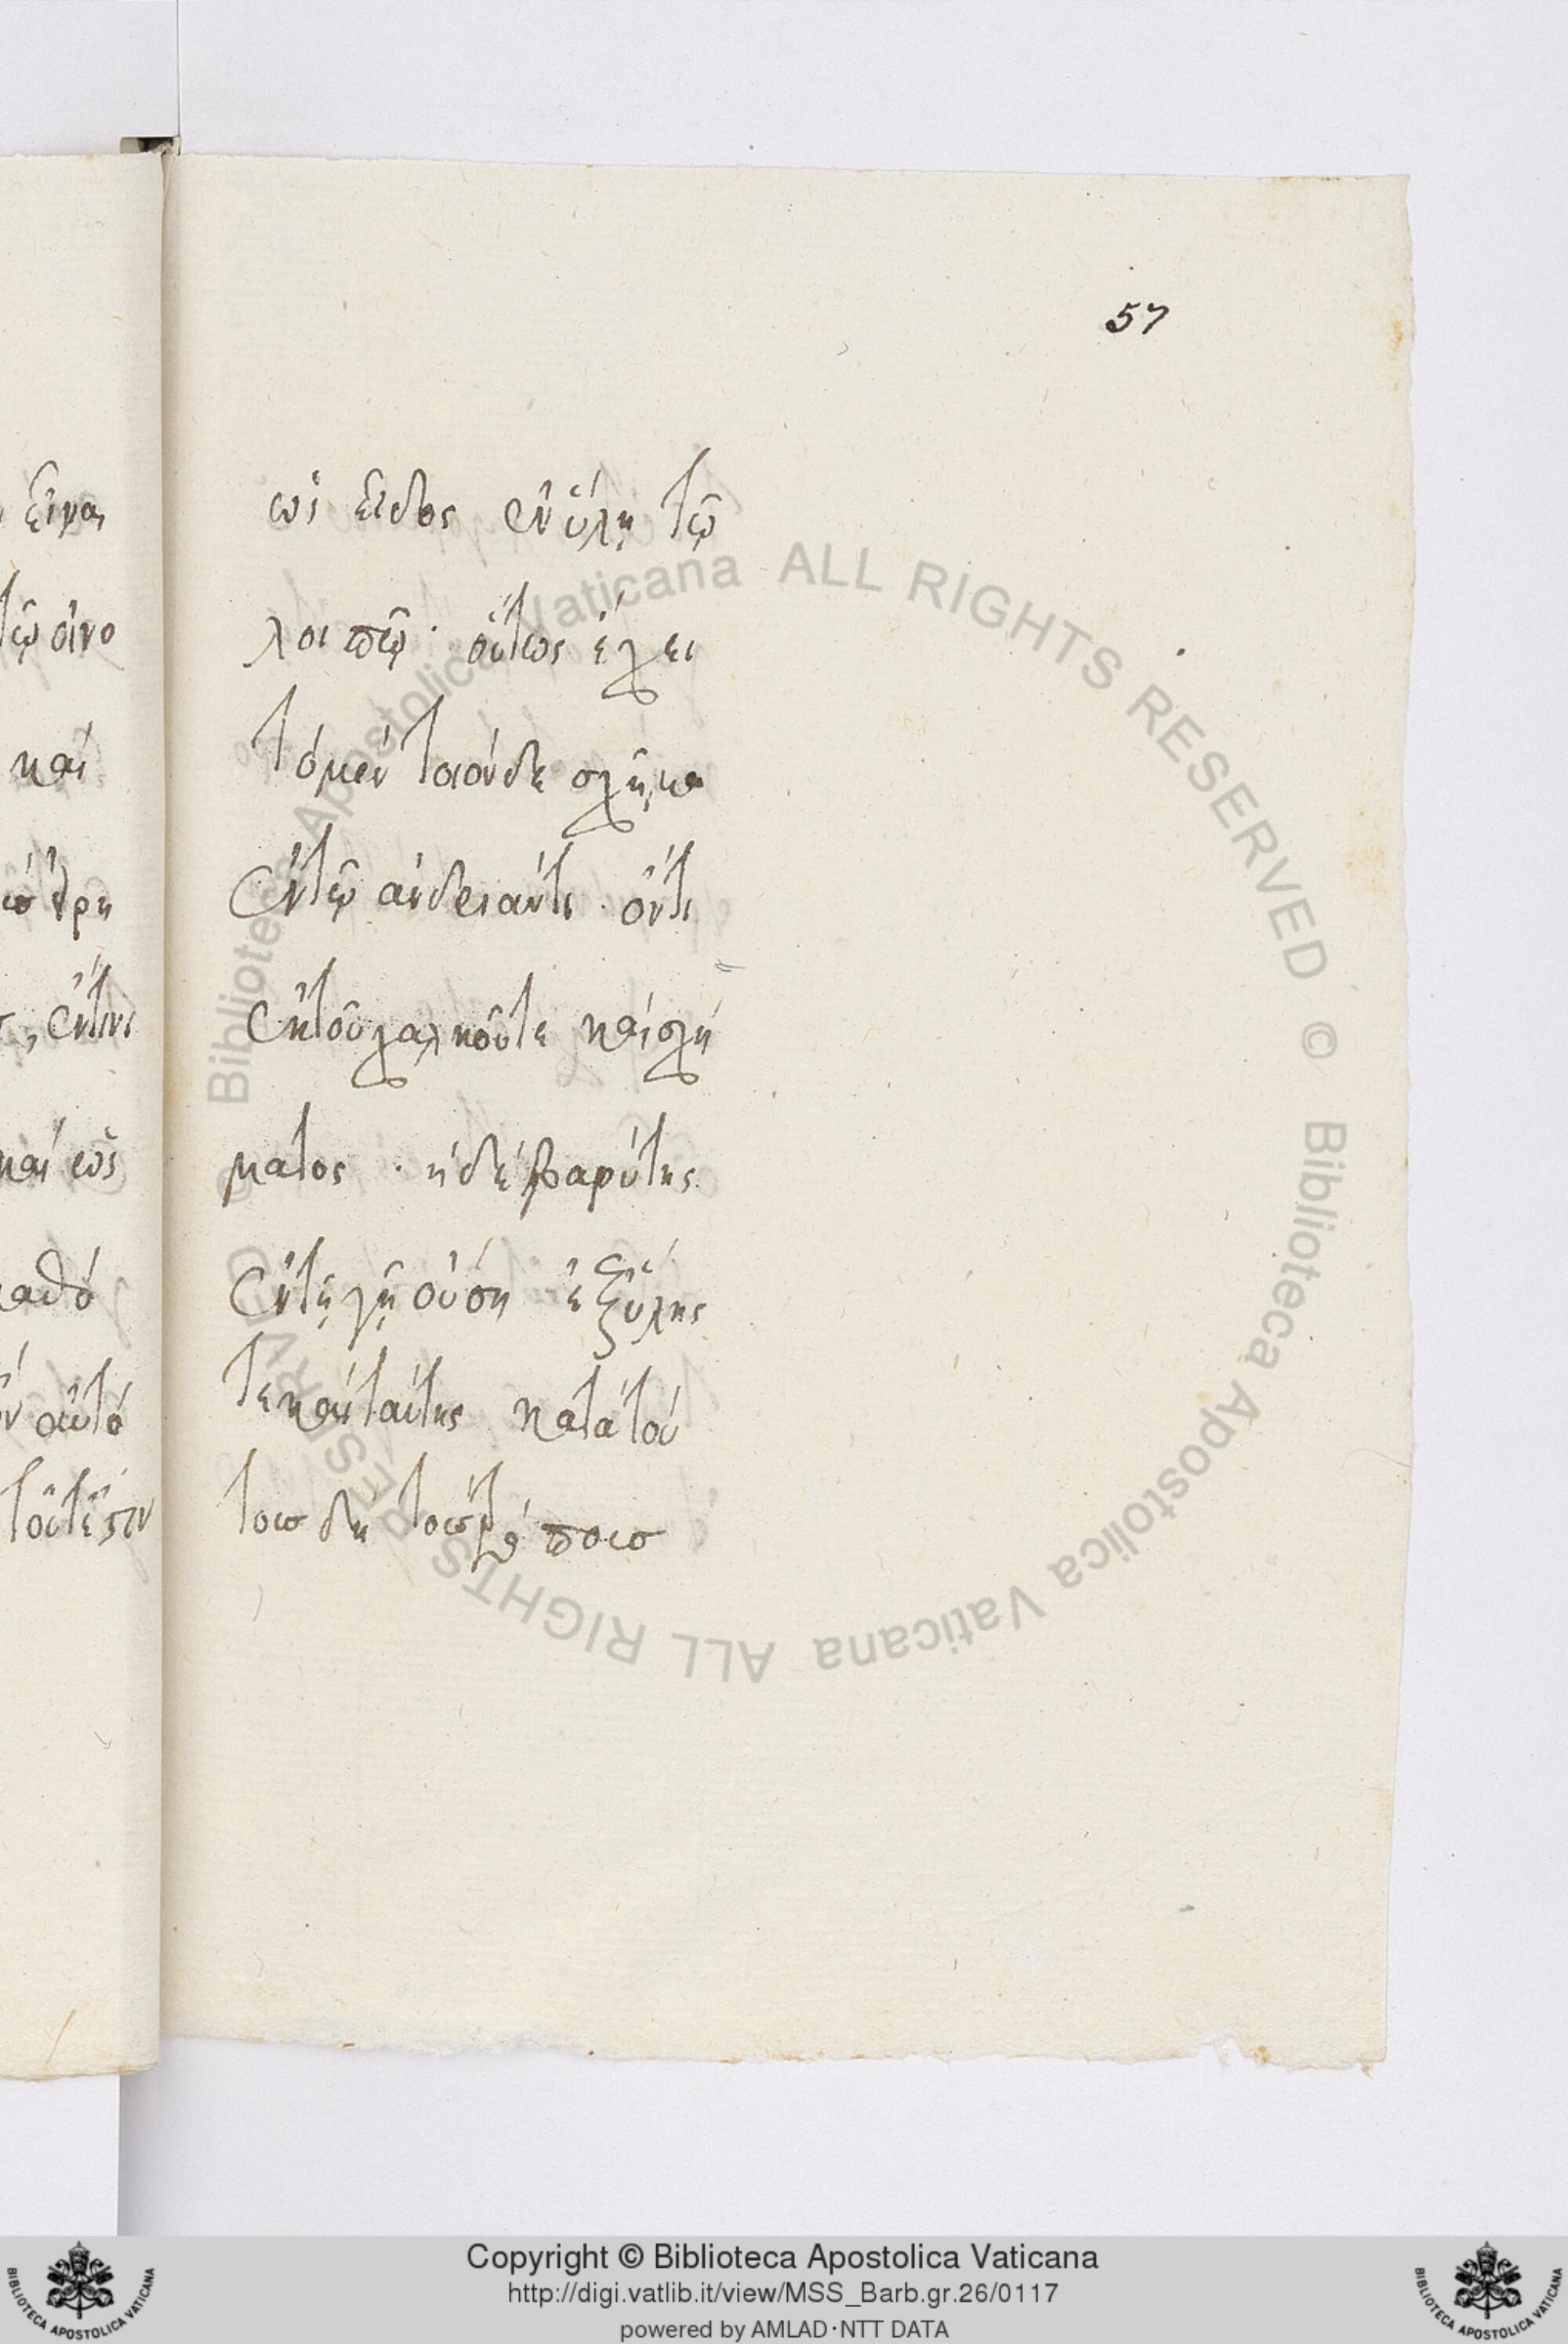 57
ὡς εἶδος ἐν ὕλῃ τῷ
λοιπῷ · οὕτως ἔχει
τὸ μὲν τοιόνδε σχῆμα
ἐν τῷ ἀνδριάντι · ὄντι
ἐκ τοῦ χαλκοῦ τε καὶ σχή
ματος · ἡ δὲ βαρύτης
ἐν τῇ γῇ οὔσῃ ἐξ ὕλης
τε καὶ ταύτης κατὰ τού
τους δὴ τοὺς
εἶναι
τῷ ἀνο
καὶ
, ἔν τινι
καὶ ὡς
καθό
αὐτό
τοῦτ ἔστιν
Biblioteca Apostolica Vaticana ALL RIGHTS RESERVED © Biblioteca Apostolica Vaticana ALL RIGHTS RESERVED ©
Copyright © Biblioteca Apostolica Vaticana
http://digi.vatlib.it/view/MSS_Barb.gr.26/0117
powered by AMLAD·NTT DATA
BIBLIOTECA APOSTOLICA VATICANA
BIBLIOTECA APOSTOLICA VATICANA